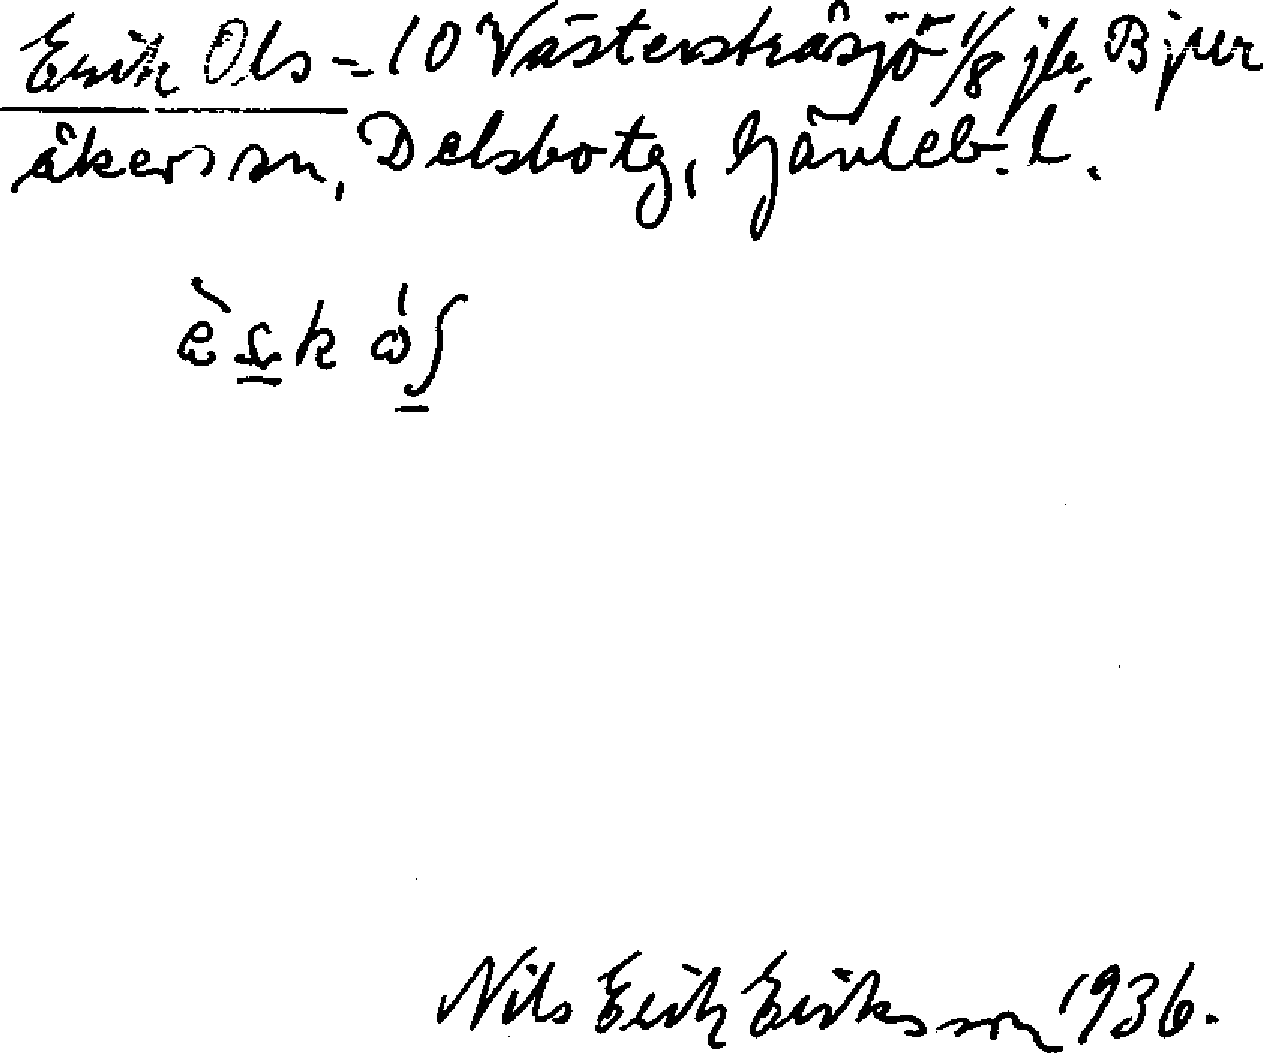 Erik Ols = 10 Västerstråsjö 1/8 jb, Bjur
åkers sn, Delsbo tg, Gävleb. l.
Nils Erik Eriksson 1936.